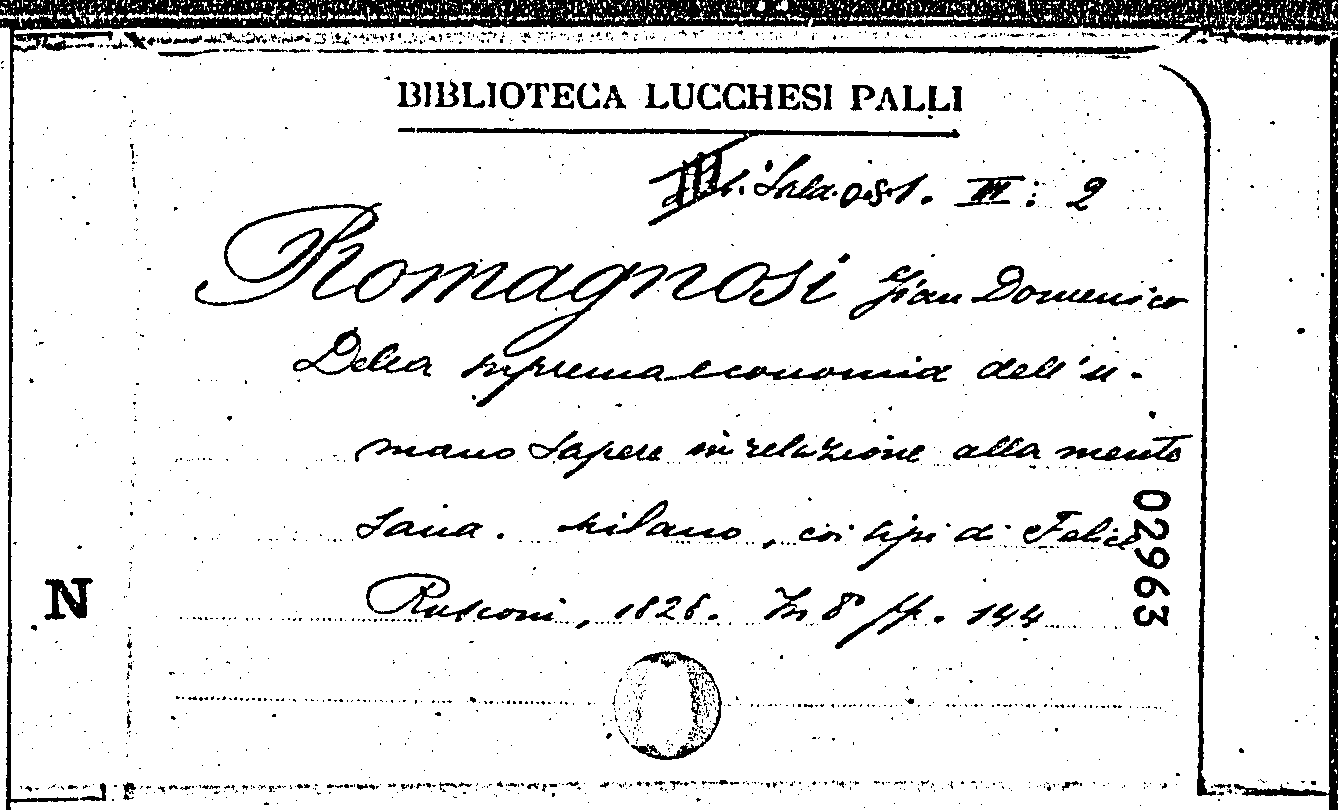 BIBLIOTECA LUCCHESI PALLI
Sala. III: 2
Romagnosi Gian Domenico
Della suprema economia dell'u-
mano sapere in relazione alla mente
sana. Milano, coi tipi di Felice
Rusconi, 1828. In 8° pp. 144
02963
N